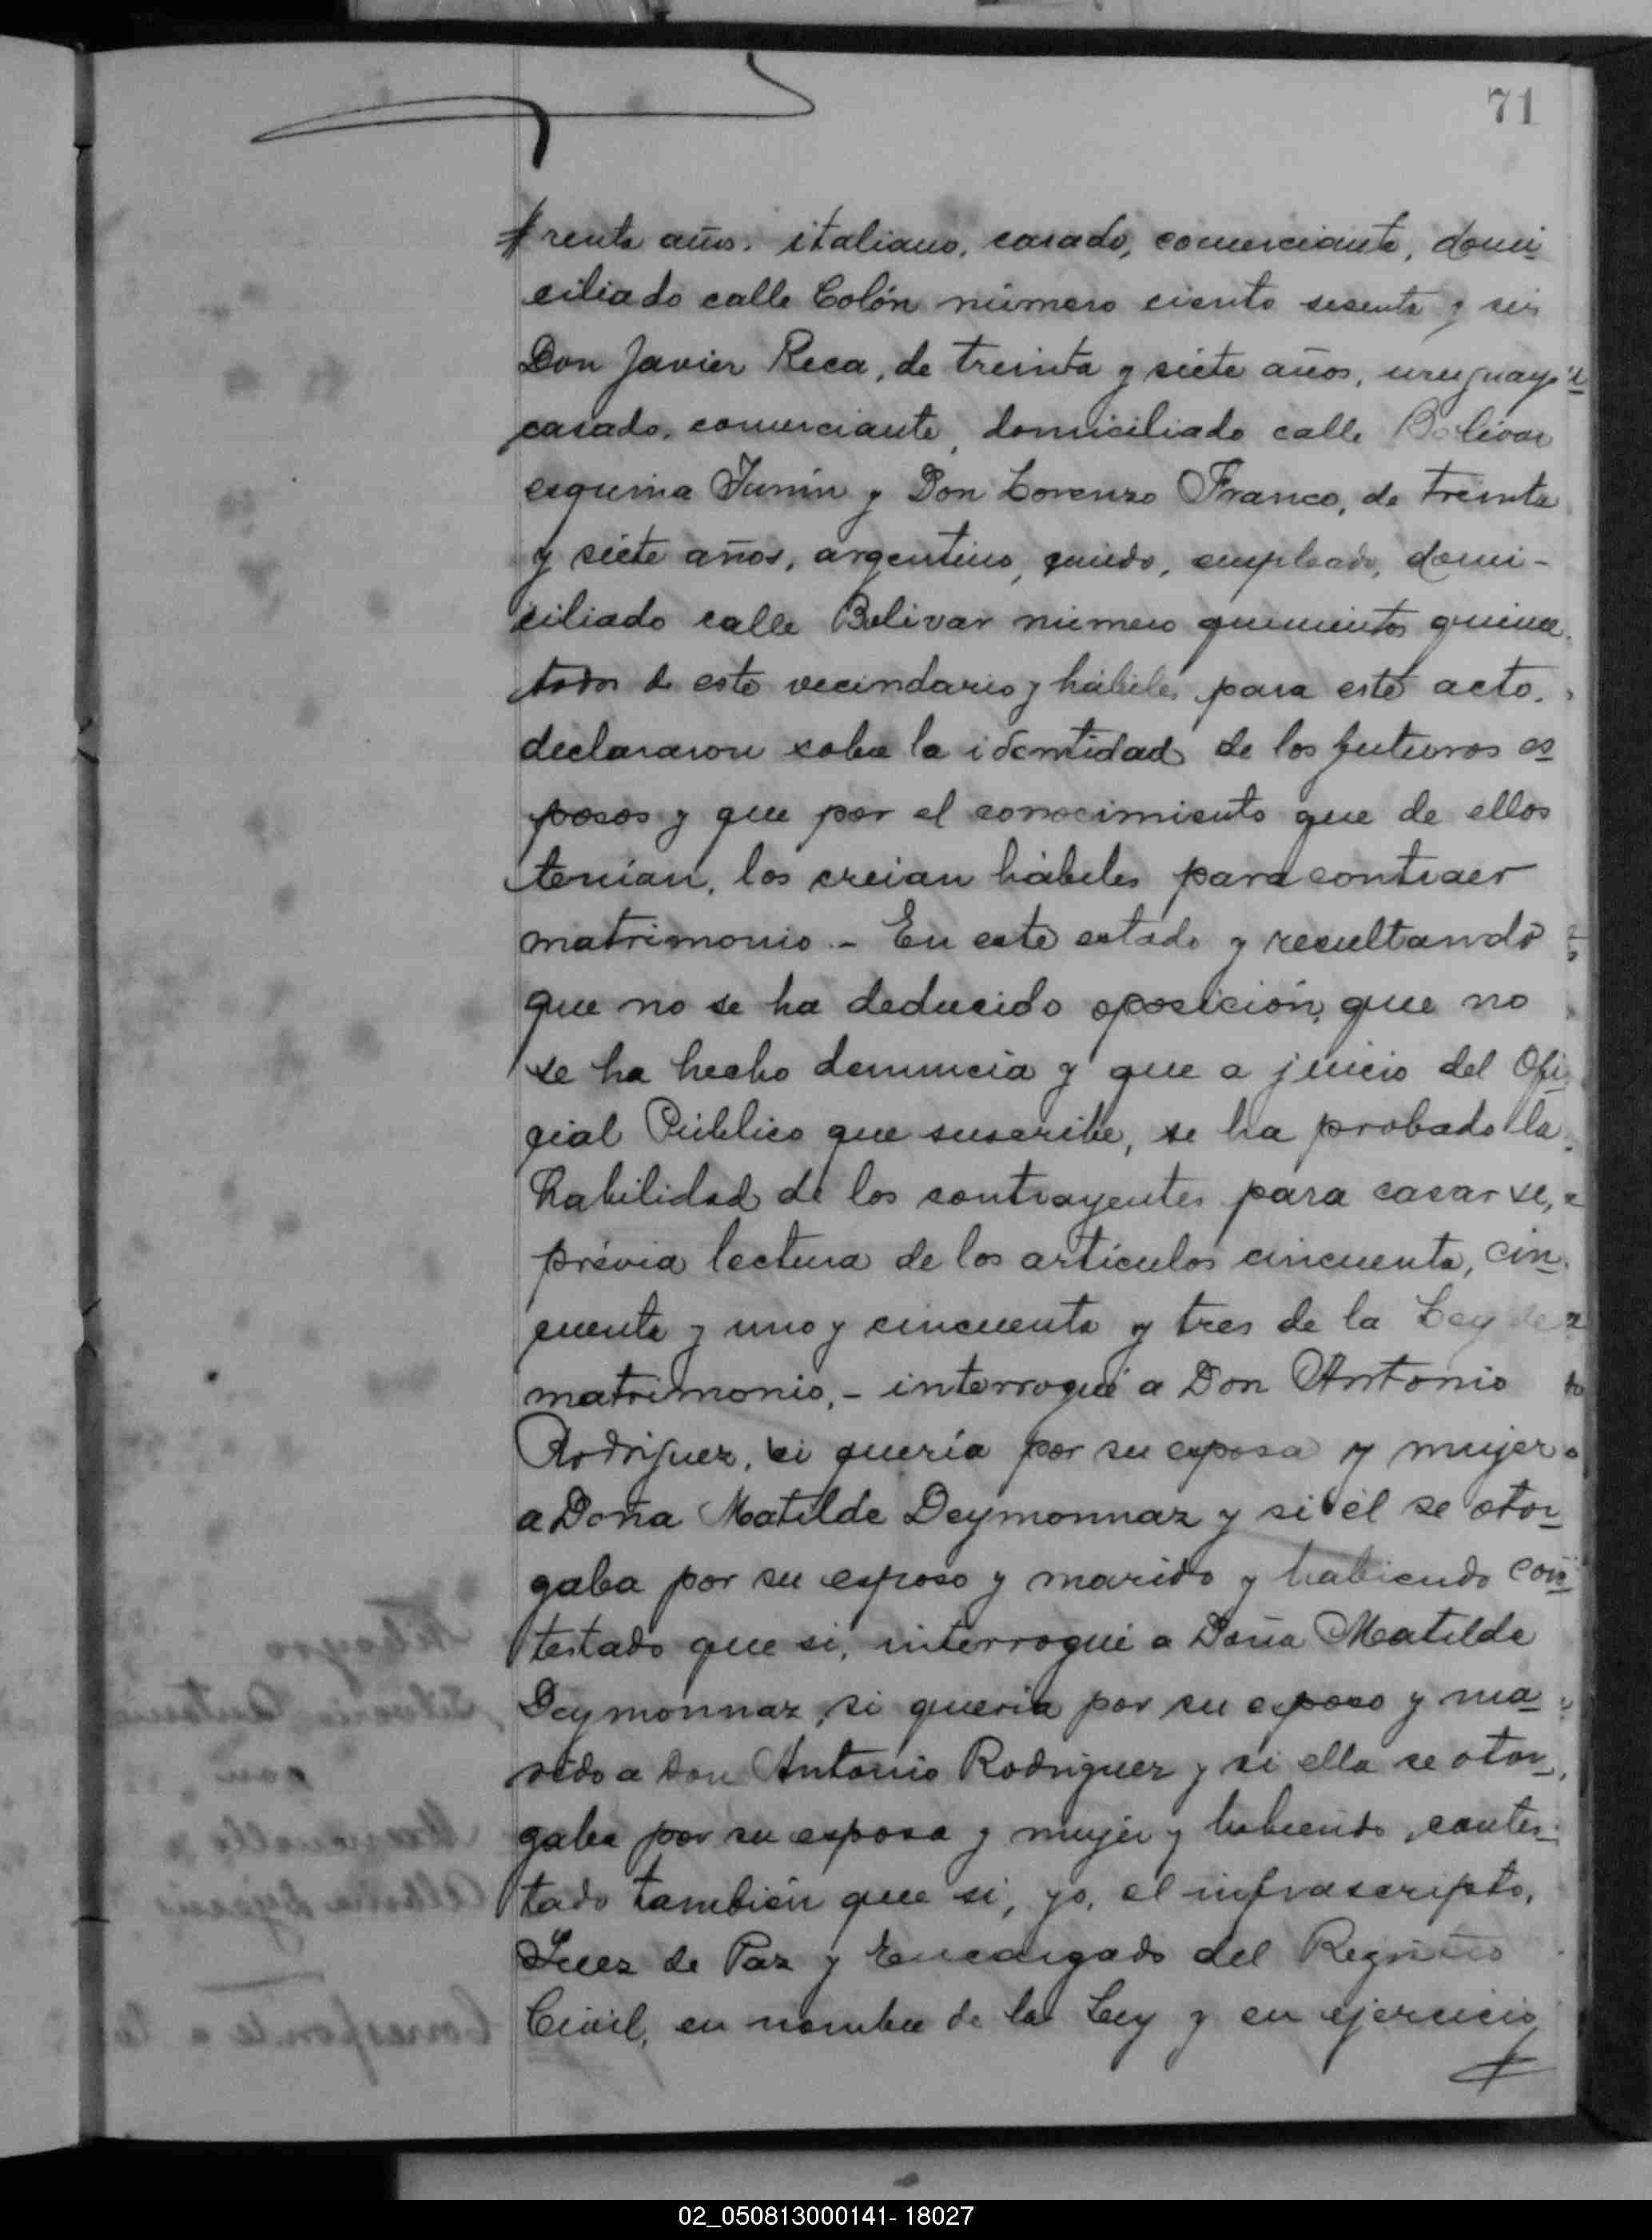 71
renta años, italiano, casado, comerciante, domi
ciliado calle Colón número ciento sesenta y seis
Don Javier Reca, de treinta y siete años, uruguayo
casado, comerciante, domiciliado calle Bolívar
esquina Junín y Don Lorenzo Franco, de treinta
y siete años, argentino, viudo, empleado, domi-
ciliado calle Bolivar número quinientos quince
todos de este vecindario y hábiles para este acto,
declararon sobre la identidad de los futuros es
posos y que por el conocimiento que de ellos
tenían, los creian hábiles para contraer
matrimonio.- En este estado y resultando
que no se ha deducido oposición, que no
se ha hecho denuncia y que a juicio del Ofi
cial Público que suscribe, se ha probado la
habilidad de los contrayentes para casarse,
prévia lectura de los artículos cincuenta, cin
cuenta y uno y cincuenta y tres de la Ley de
matrimonio,- interrogué a Don Antonio
Rodriguez, si quería por su esposa y mujer
a Doña Matilde Deymonnaz y si él se otor
gaba por su esposo y marido y habiendo con
testado que si, interrogué a Doña Matilde
Deymonnaz, si queria por su esposo y ma
rido a Don Antonio Rodriguez y si ella se otor
gaba por su esposa y mujer y habiendo contes
tado también que si, yo, el infrascripto,
Juez de Paz y Encargado del Registro
Civil, en nombre de la Ley y en ejercicio
02_050813000141- 18027